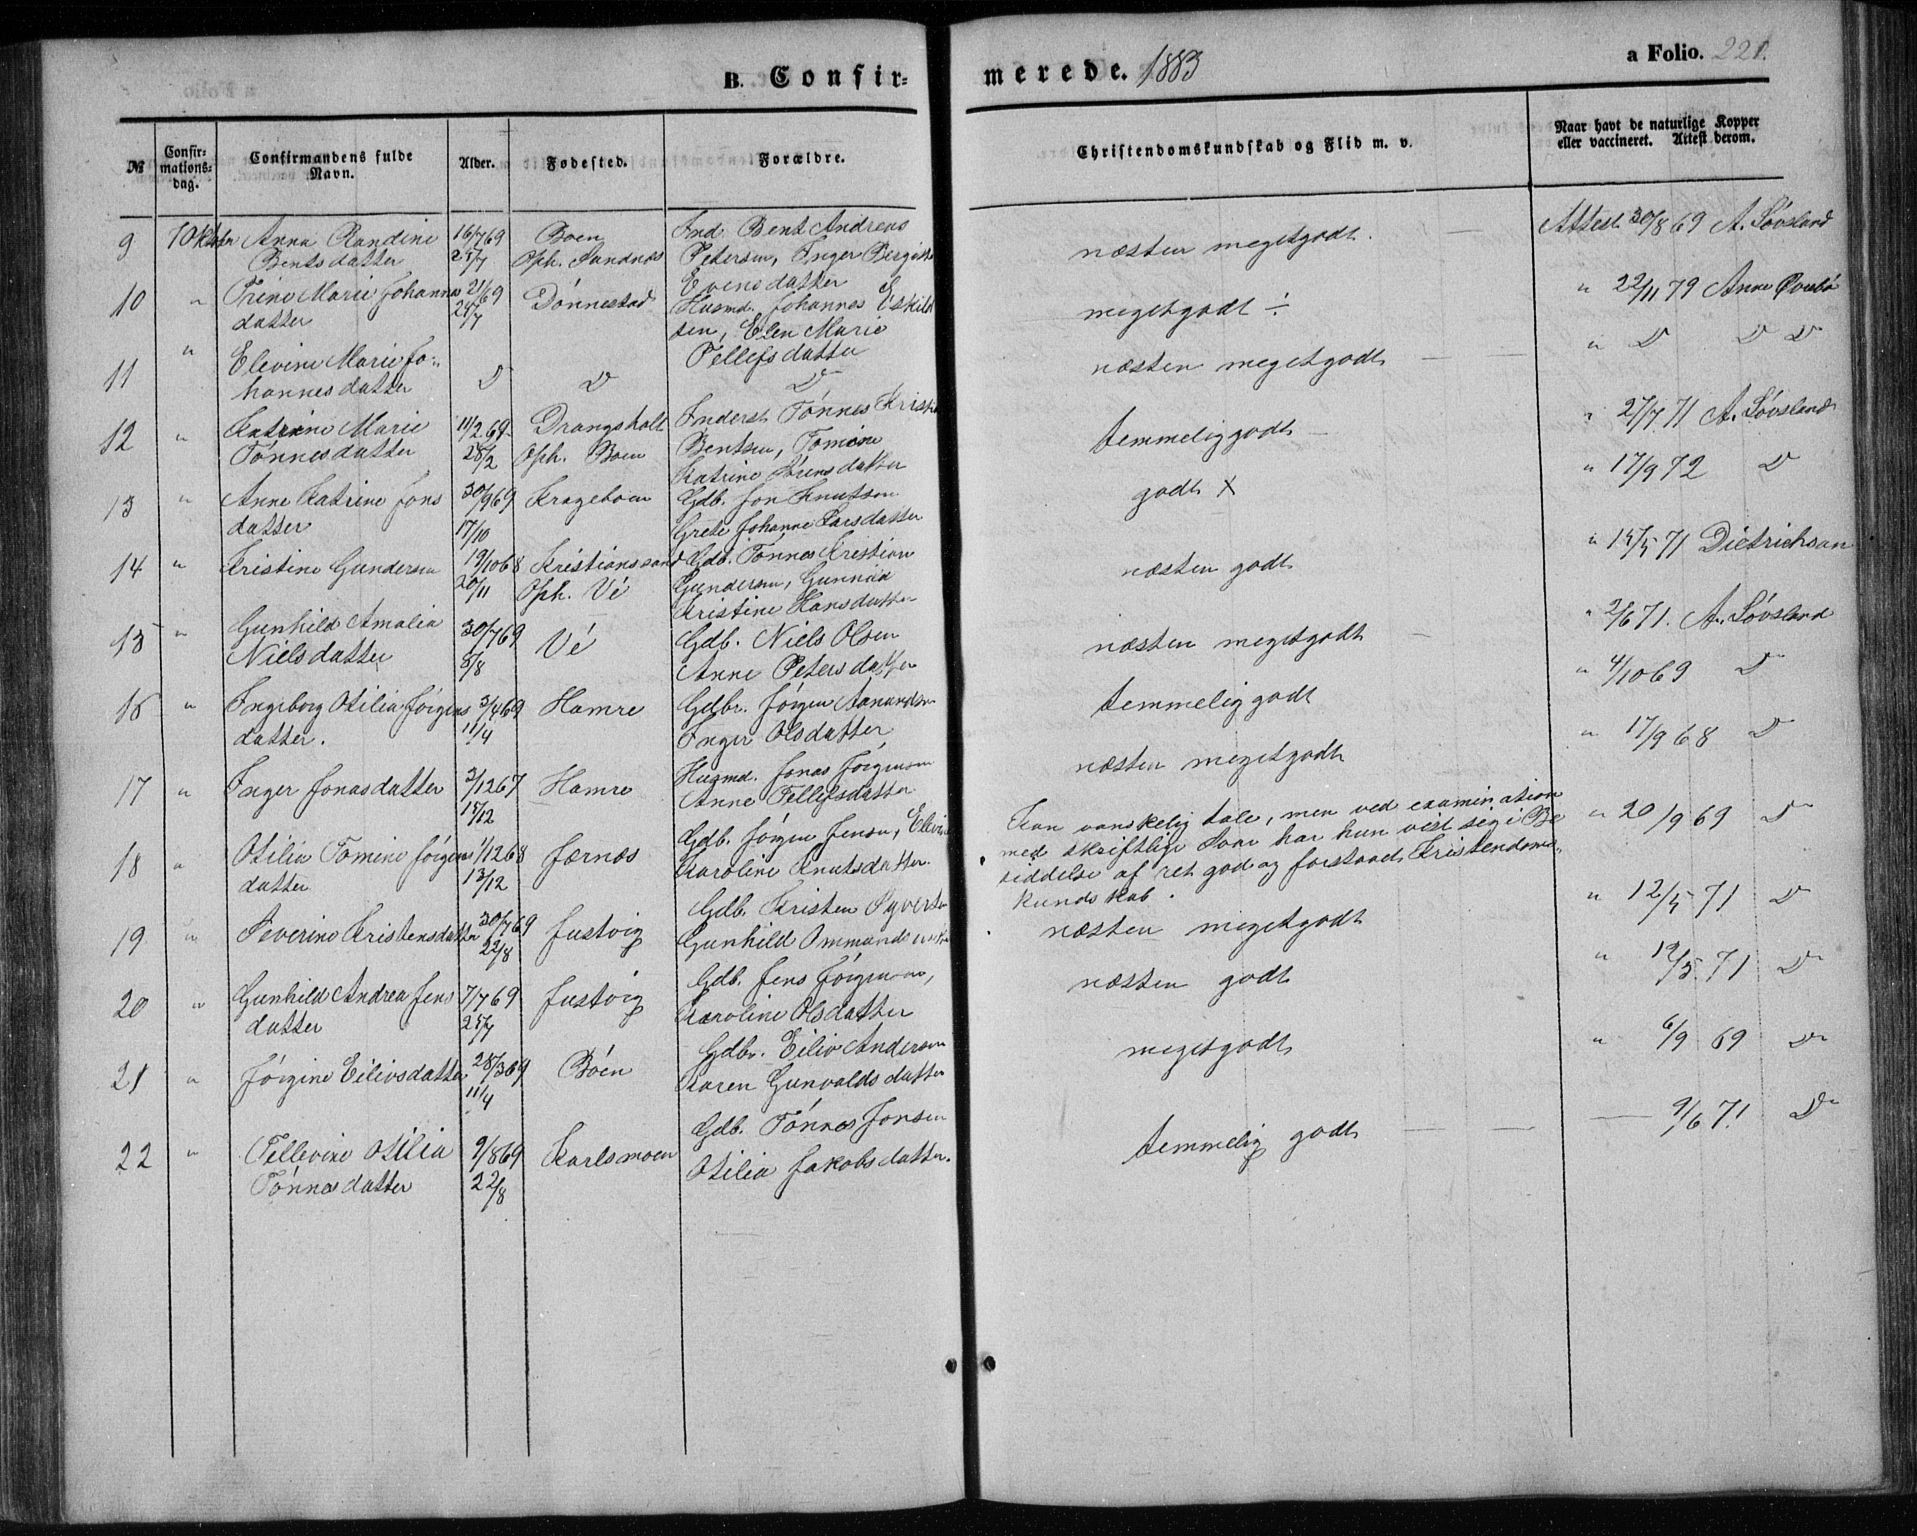 B. Confir-
merede. 1883
a Folio. 221.
№
Confir-
mations-
dag.
Confirmandens fulde
Navn.
Alder.
Fødested.
Forældre.
Christendomskundskab og Flid m. v.
Naar havt de naturlige Kopper
eller vaccineret. Attest derom.
9 7 Oktbr Anna Randine 16/7 69 Boen Ind. Bent Andreas næsten megetgodt. Attest 30/8 69 A. Løvsland
Bentsdatter 25/7 Oph. Sandnæs Petersen, Inger Bergitte
Evensdatter
10 " Trine Marie Johannes 21/ 69 Dønnestad Husmd. Johannes Eskild megetgodt ÷ " 22/11 79 Anne Øvrebø
datter 25/7 sen, Elen Marie
Tellefsdatter
11 " Elevine Marie Jo- D D D næsten megetgodt " D D D
hannesdatter
12 " Katrine Marie 11/2 69 Drangsholt Inderst Tønnes Kristi temmelig godt " 27/7 71 A. Løvsland
Tønnesdatter 28/2 Oph. Boen Bentsen, Tomine
Katrine Jensdatter
13 " Anne Katrine Jons 30/9 69 Krageboen Gdb. Jon Knutsen godt x " 17/9 72 D
datter 17/10 Grete Johanne Larsdatter
14 " Kristine Gundersen 19/10 68 Kristianssand Gdb. Tønnes Krestian næsten godt " 15/5 71 Dietrichson
20/11 Oph. Vé Gundersen, Gunnild
Kristine Hansdatter
15 " Gunhild Amalia 30/7 69 Vé Gdb. Niels Olsen næsten megetgodt " 2/6 71. A. Løvsland
Nielsdatter 8/8 Anne Petersdatter
16 " Ingeborg Otilia Jørgens 3/4 69 Hamre Gdbr. Jørgen Aanundsen temmelig godt " 4/10 69 D
datter. 11/4 Inger Olsdatter
17 " Inger Jonasdatter 2/12 67 Hamre Husmd. Jonas Jørgensen næsten megetgodt " 17/9 68 D
15/12 Anne Tellefsdatter
18 " Otilia Tomine Jørgens 1/12 68 Jærnæs Gdb. Jørgen Jensen, Elevine Kan vanskelig tale, men ved examination " 20/9 69 D
datter 13/12 Karoline Knutsdatter. med skriftlige Svar har hun vist sig i Be
siddelse af ret god og forstaaet Kristendoms-
kundskab.
19 " Severine Kristensdatter 30/7 69 Justvig Gdb. Kristen Syversen næsten megetgodt " 12/5 71 D
22/8 Gunhild Ommundsdatter
20 " Gunhild Andrea Jens 7/7 69 Justvig Gdb. Jens Jørgensen, næsten godt " 12/5 71 D
datter 25/7 Karoline Olsdatter
21 " Jørgine Eilivsdatter 28/3 69 Bóen Gdbr. Eiliv Andersen megetgodt " 6/9 69 D
11/4 Karen Gunvaldsdatter
22 " Tellevine Otilia 9/8 69 Karlsmoen Gdb. Tønnes Jonsen temmelig godt 9/6 71. D
Tønnesdatter 22/8 Otilia Jakobsdatter.